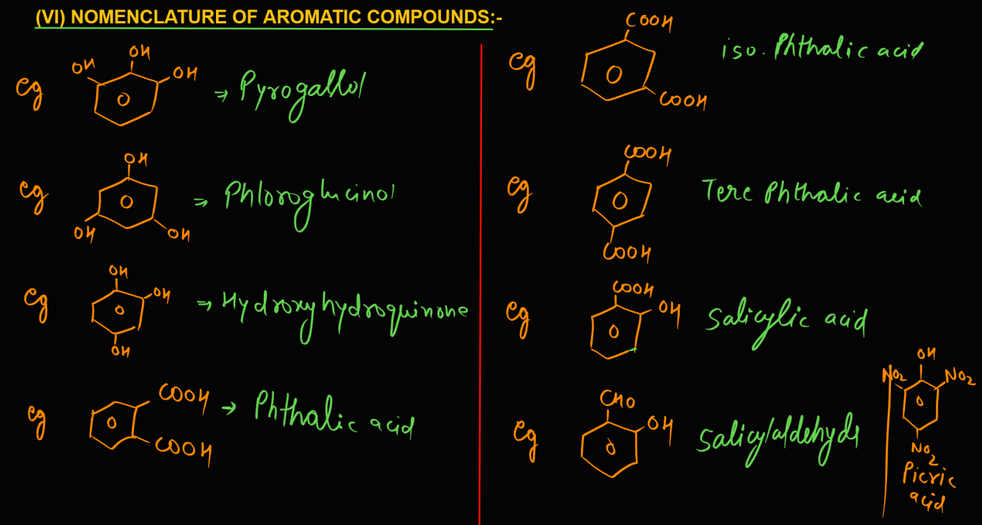 (VI) NOMENCLATURE OF AROMATIC COMPOUNDS:-
OH
OH
OH
Eg
O
⇒ Pyrogallol
OH
Eg
O
⇒ Phloroglucinol
OH
OH
OH
Eg
OH
O
⇒ Hydroxyhydroquinone
OH
COOH
Eg
O
→ Phthalic acid
COOH
COOH
Eg
O
iso. Phthalic acid
COOH
COOH
Eg
O
Tere Phthalic acid
COOH
COOH
Eg
OH
O
Salicylic acid
CHO
Eg
OH
O
Salicylaldehyde
OH
NO2
NO2
O
NO2
Picric
acid